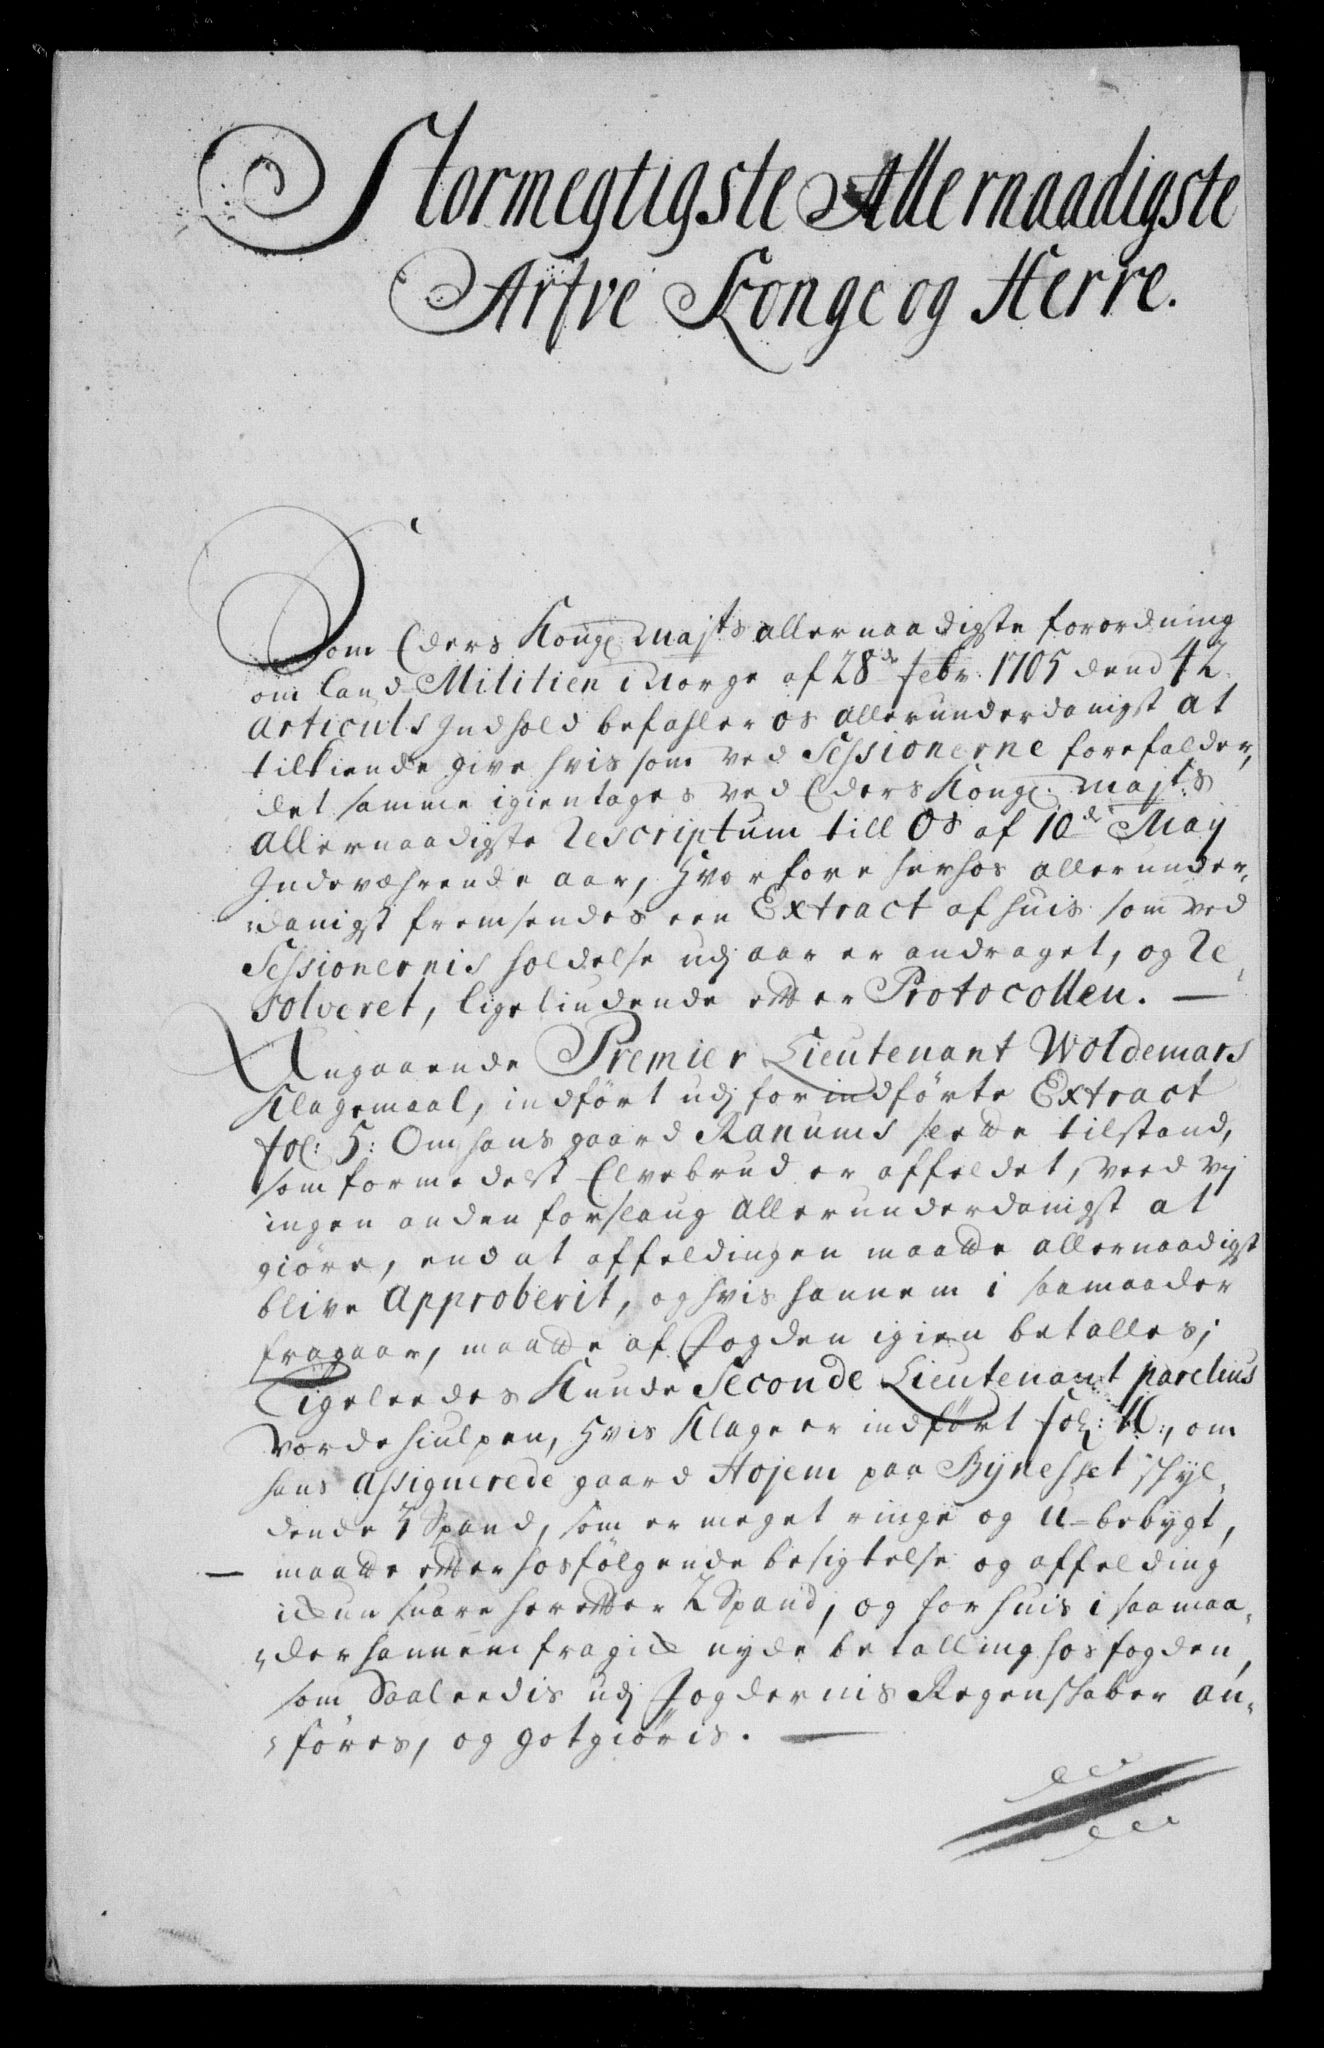 Stormegtigste Allernaadigste
Arfve Konge og Herre.
Som Eders Kongl. Majts allernaadigste forordning
om Land Militien i Norge af 28de Febr. 1705 dend 42.
Articuls Indhold befahler os allerunderdanigst at
tilkiende give hvis som ved Sessionerne forefalder,
det samme igientages ved Eders Kongl. Majts
Allernaadigste Rescriptum till Os af 10de May
Indeværende aar, hvorfore herhos allerunder-
danigst fremsendes een Extract af huis som ved
Sessionernis holdelse udj aar er andraget, og Re-
solveret, ligeliudende efter Protocollen. —
Angaaende Premier Lieutenant Woldemars
Klagemaal, indført udj formindførte Extract
fol: 5: Om hans gaard Ranums slette tilstand,
som formedelst Elvebrud er affeldet, veed vj
ingen anden forslaug allerunderdanigst at
giöre, end at affeldingen maatte allernaadigst
blive Approberit, og hvis hannem i saamaader
fragaar, maatte af Fogden igien betalles;
Ligeleedes Kunde Seconde Lieutenant parelius
vorde hiulpen, hvis Klage er indført fol: :, om
hans assignerede gaard Hojem paa Bynesset skyl-
dende 3 Spand, som er meget ringe og U-bebygt,
— maatte efter hosfölgende besigtelse og affelding
ickun suare herefter 2 Spand, og for huis i saamaa-
der hannem fragick nyde betalling hos fogden,
som Saaleedis udj Fogdernis Regenskaber an-
föres, og gotgiöris. —